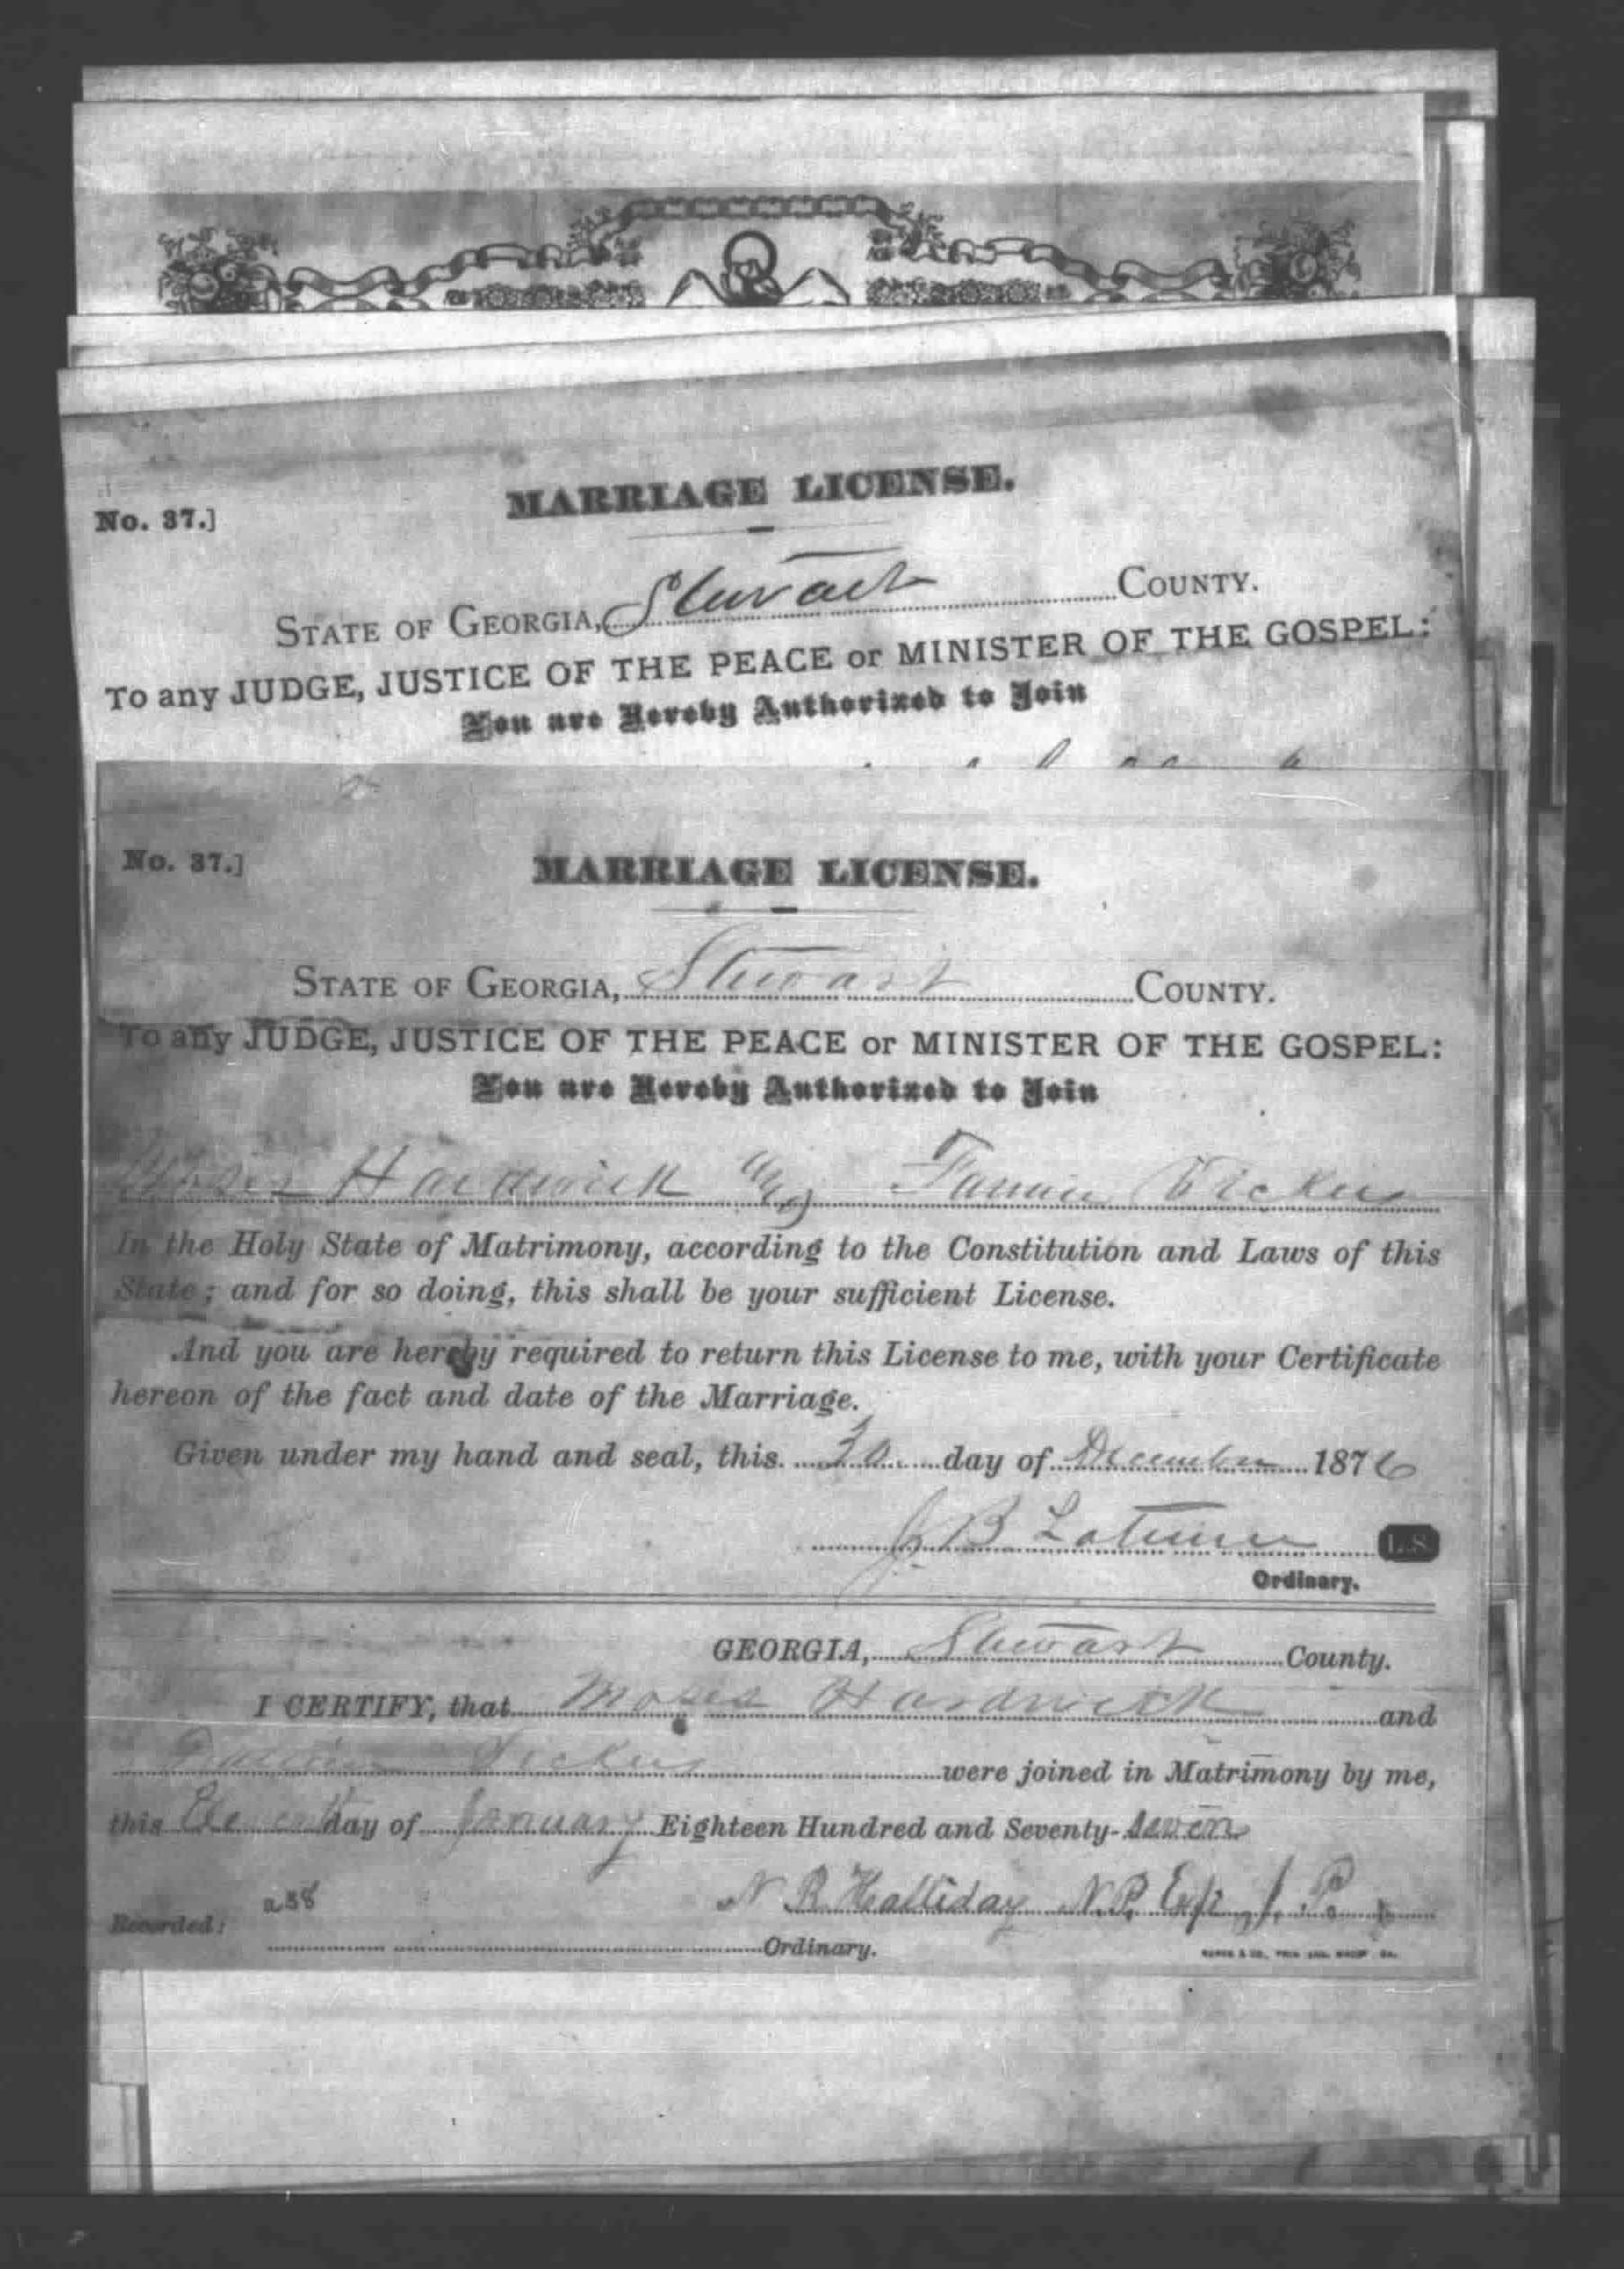 MARRIAGE LICENSE.
No. 37.]
STATE OF GEORGIA, Stewart COUNTY.
To any JUDGE, JUSTICE OF THE PEACE or MINISTER OF THE GOSPEL:
You are Hereby Authorized to Join
No. 37.]
MARRIAGE LICENSE.
STATE OF GEORGIA, Stewart COUNTY.
To any JUDGE, JUSTICE OF THE PEACE or MINISTER OF THE GOSPEL:
You are Hereby Authorized to Join
Moses Hardwick Fannie
In the Holy State of Matrimony, according to the Constitution and Laws of this
State; and for so doing, this shall be your sufficient License.
And you are hereby required to return this License to me, with your Certificate
hereon of the fact and date of the Marriage.
Given under my hand and seal, this 30 day of December 1876
J B Latimer L.S.
Ordinary.
GEORGIA, Stewart County.
I CERTIFY, that Moses Hardwick and
Fannie were joined in Matrimony by me,
this Eleventh day of January Eighteen Hundred and Seventy-seven
N R Halliday N.P. J. P.
Recorded:
Ordinary.